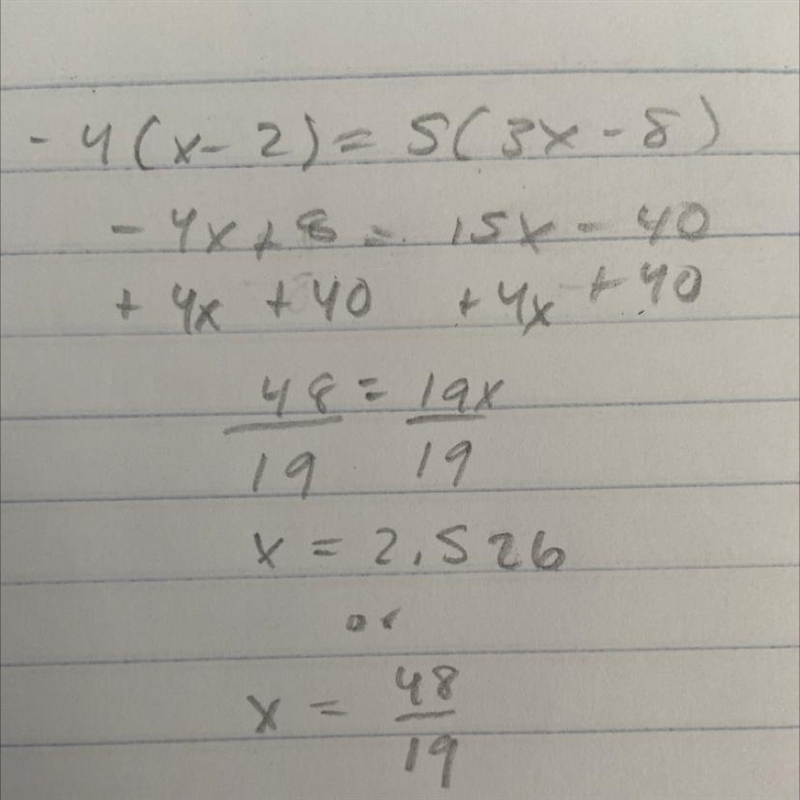 -4(x-2)=5(3x-8)
-4x+8=15x-40
+4x +40 +4x +40
48 = 19x
19 19
x=2.526
or
x = 48/19